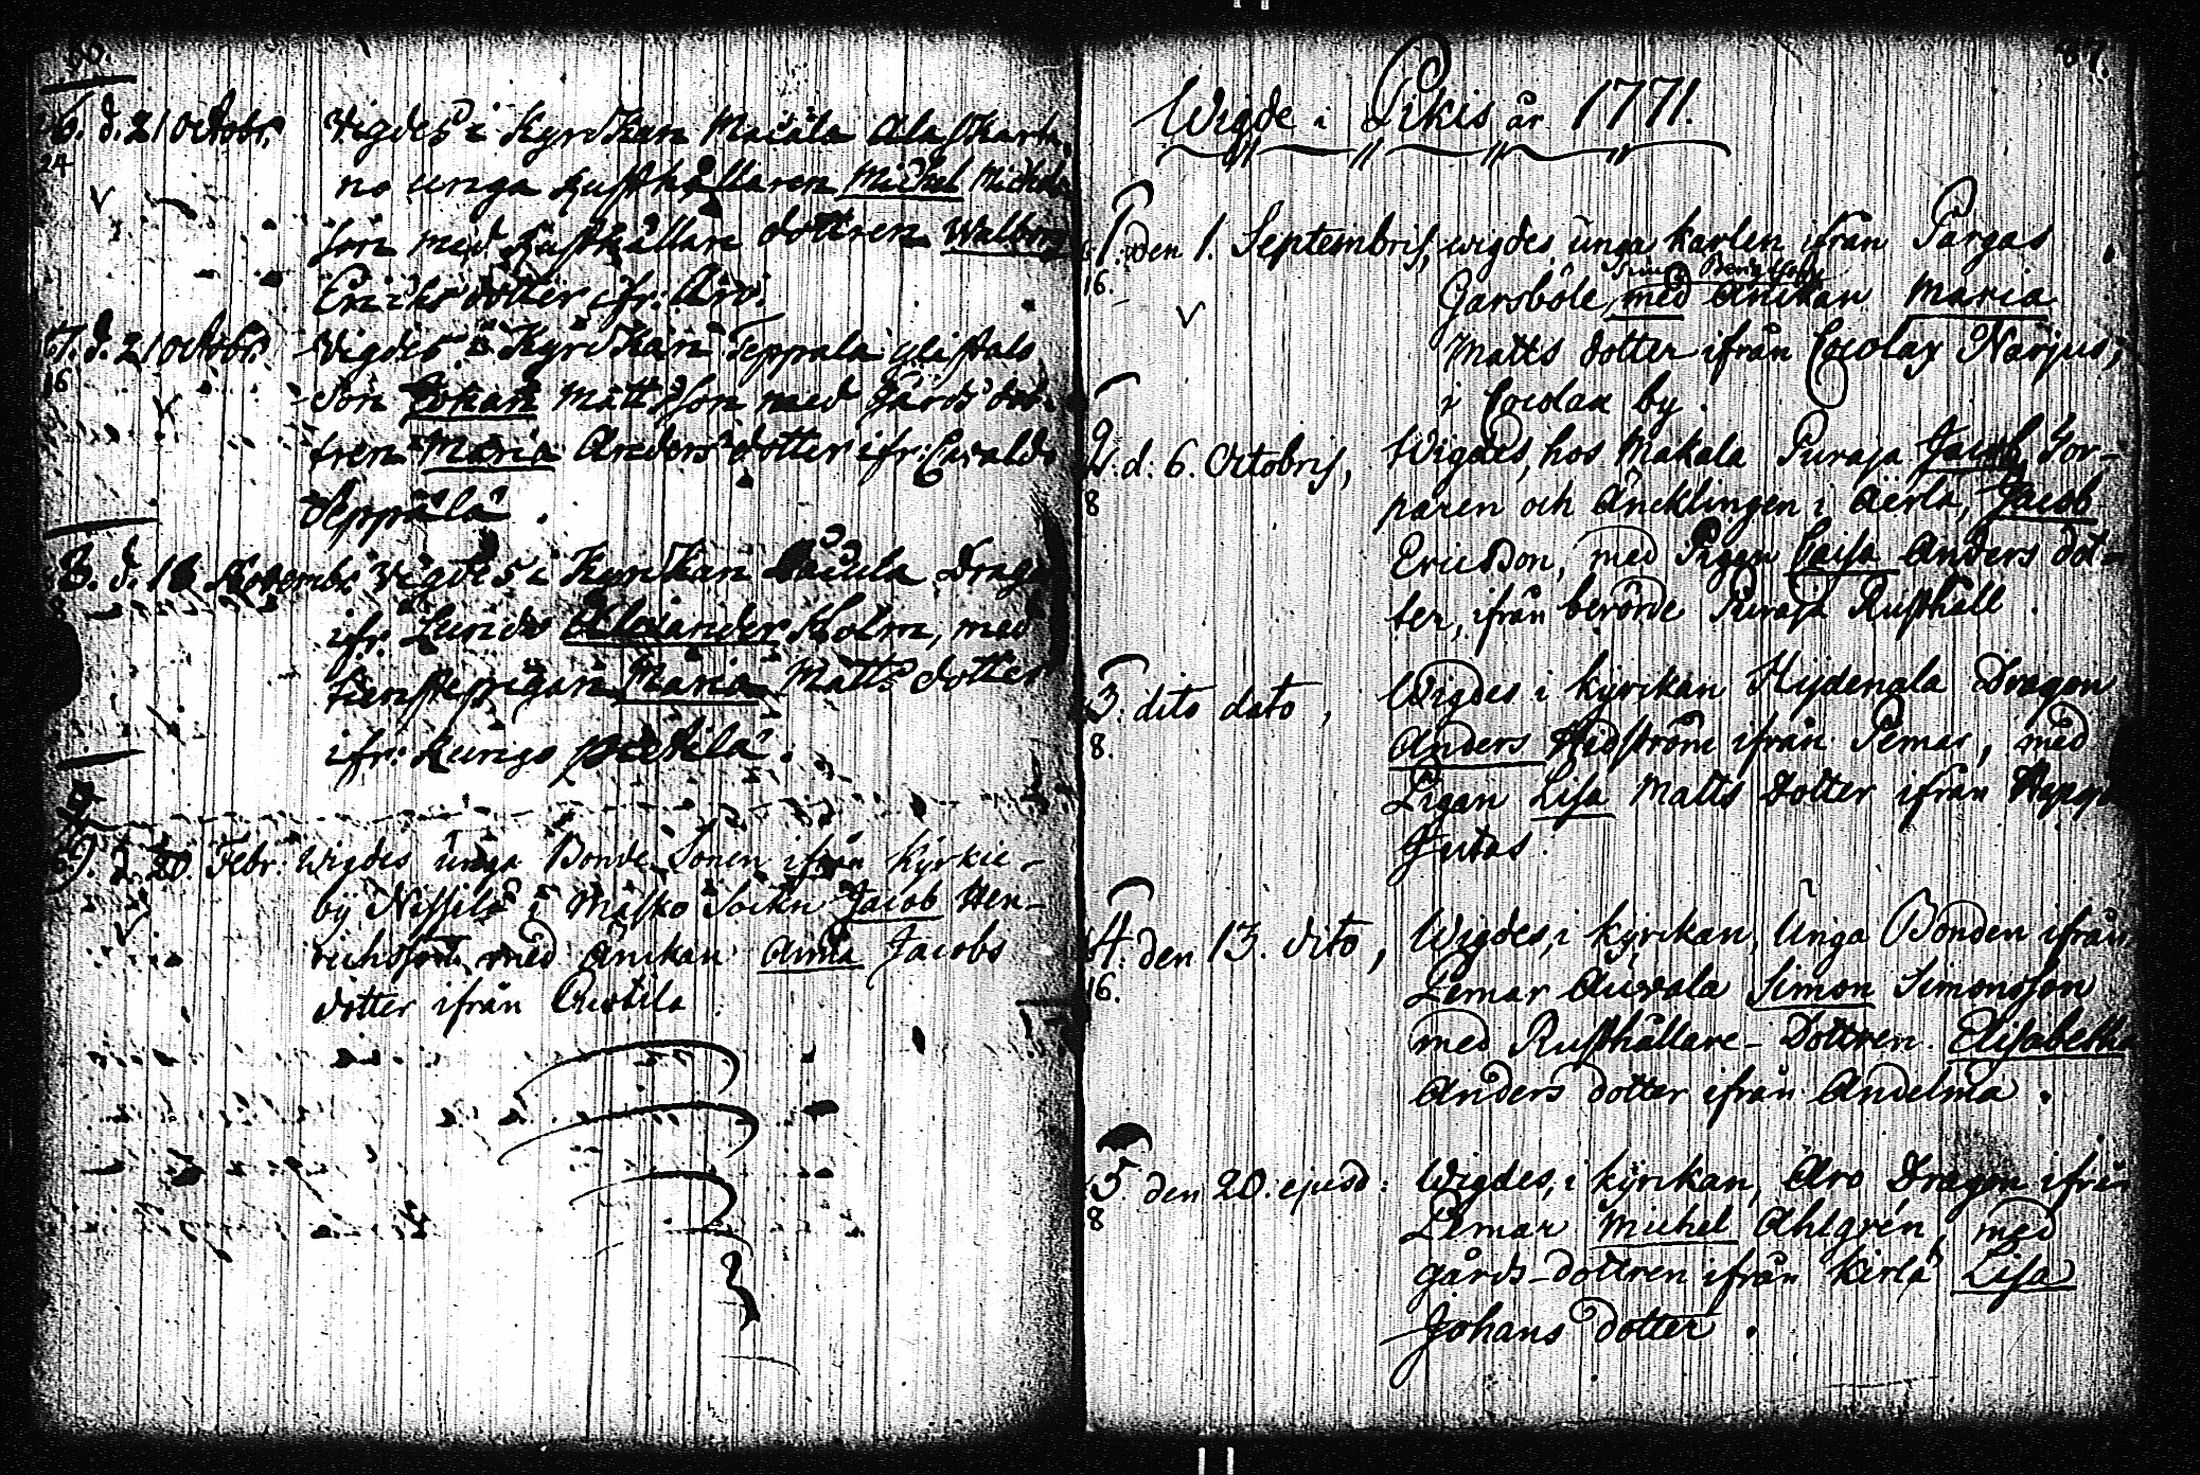 6. d. 21 Octobr. Vigdes i Kyrckan
24
no unga Rusthållaren Michel Michels
son med Rusthållare dottren Walborg
Erichs dotter ifr: Aro.
7. d. 21 Octobr. Vigdes i Kyrckan Seppälä
16
Son Johan Matts Son med Gårds dot-
tren Maria Anders dotter ifr:
Seppälä.
8. d. 18 Novembr. Vigdes i Kyrckan Drag
8
ifr. Alexander Holm, med
Maria Matts dotter
ifr: Kungs
9. d. 20 Febr: Wigdes unga Bonde Sonen ifrån Kyrkie-
by Nissilä i Masko Sockn Jacob Hen-
richsson med änkan Anna Jacobs
dotter ifrån Ristila.
87.
Wigde i Pikis år 1771.
1. Den 1. Septembris, wigdes unga karlen ifrån Pargas
16.
Simon Bengtson
Garsböle, med änkan Maria
Matts dotter ifrån Cocolax Närjus,
i Cocolax by.
2. d: 6. Octobris, Wigdes, hos Makala Puraja Jacob, Kor-
8
paren och Äncklingen i Aërla, Jacob
Ericsson, med Pigan Caisa Anders dot-
ter, ifrån berörde Puraja Rusthåll.
3. dito dato, Wigdes i kyrckan Hydenala Dragon
8.
Anders Hidström ifrån Pemar, med
Pigan Lisa Matts dotter ifrån
Jutas.
4. den 13. dito, Wigdes, i kyrckan, Unga Bonden ifrån
16.
Pemar Auvala Simon Simonsson
med Rusthållare-Dottren Elisabeth
Anders dotter ifrån Andelma.
5. den 20. ejusd: Wigdes, i kyrckan, Aro Dragon ifrån
8
Pemar Michel Ahlgrén, med
gårds-dottren ifrån Kirla Lisa
Johans dotter.